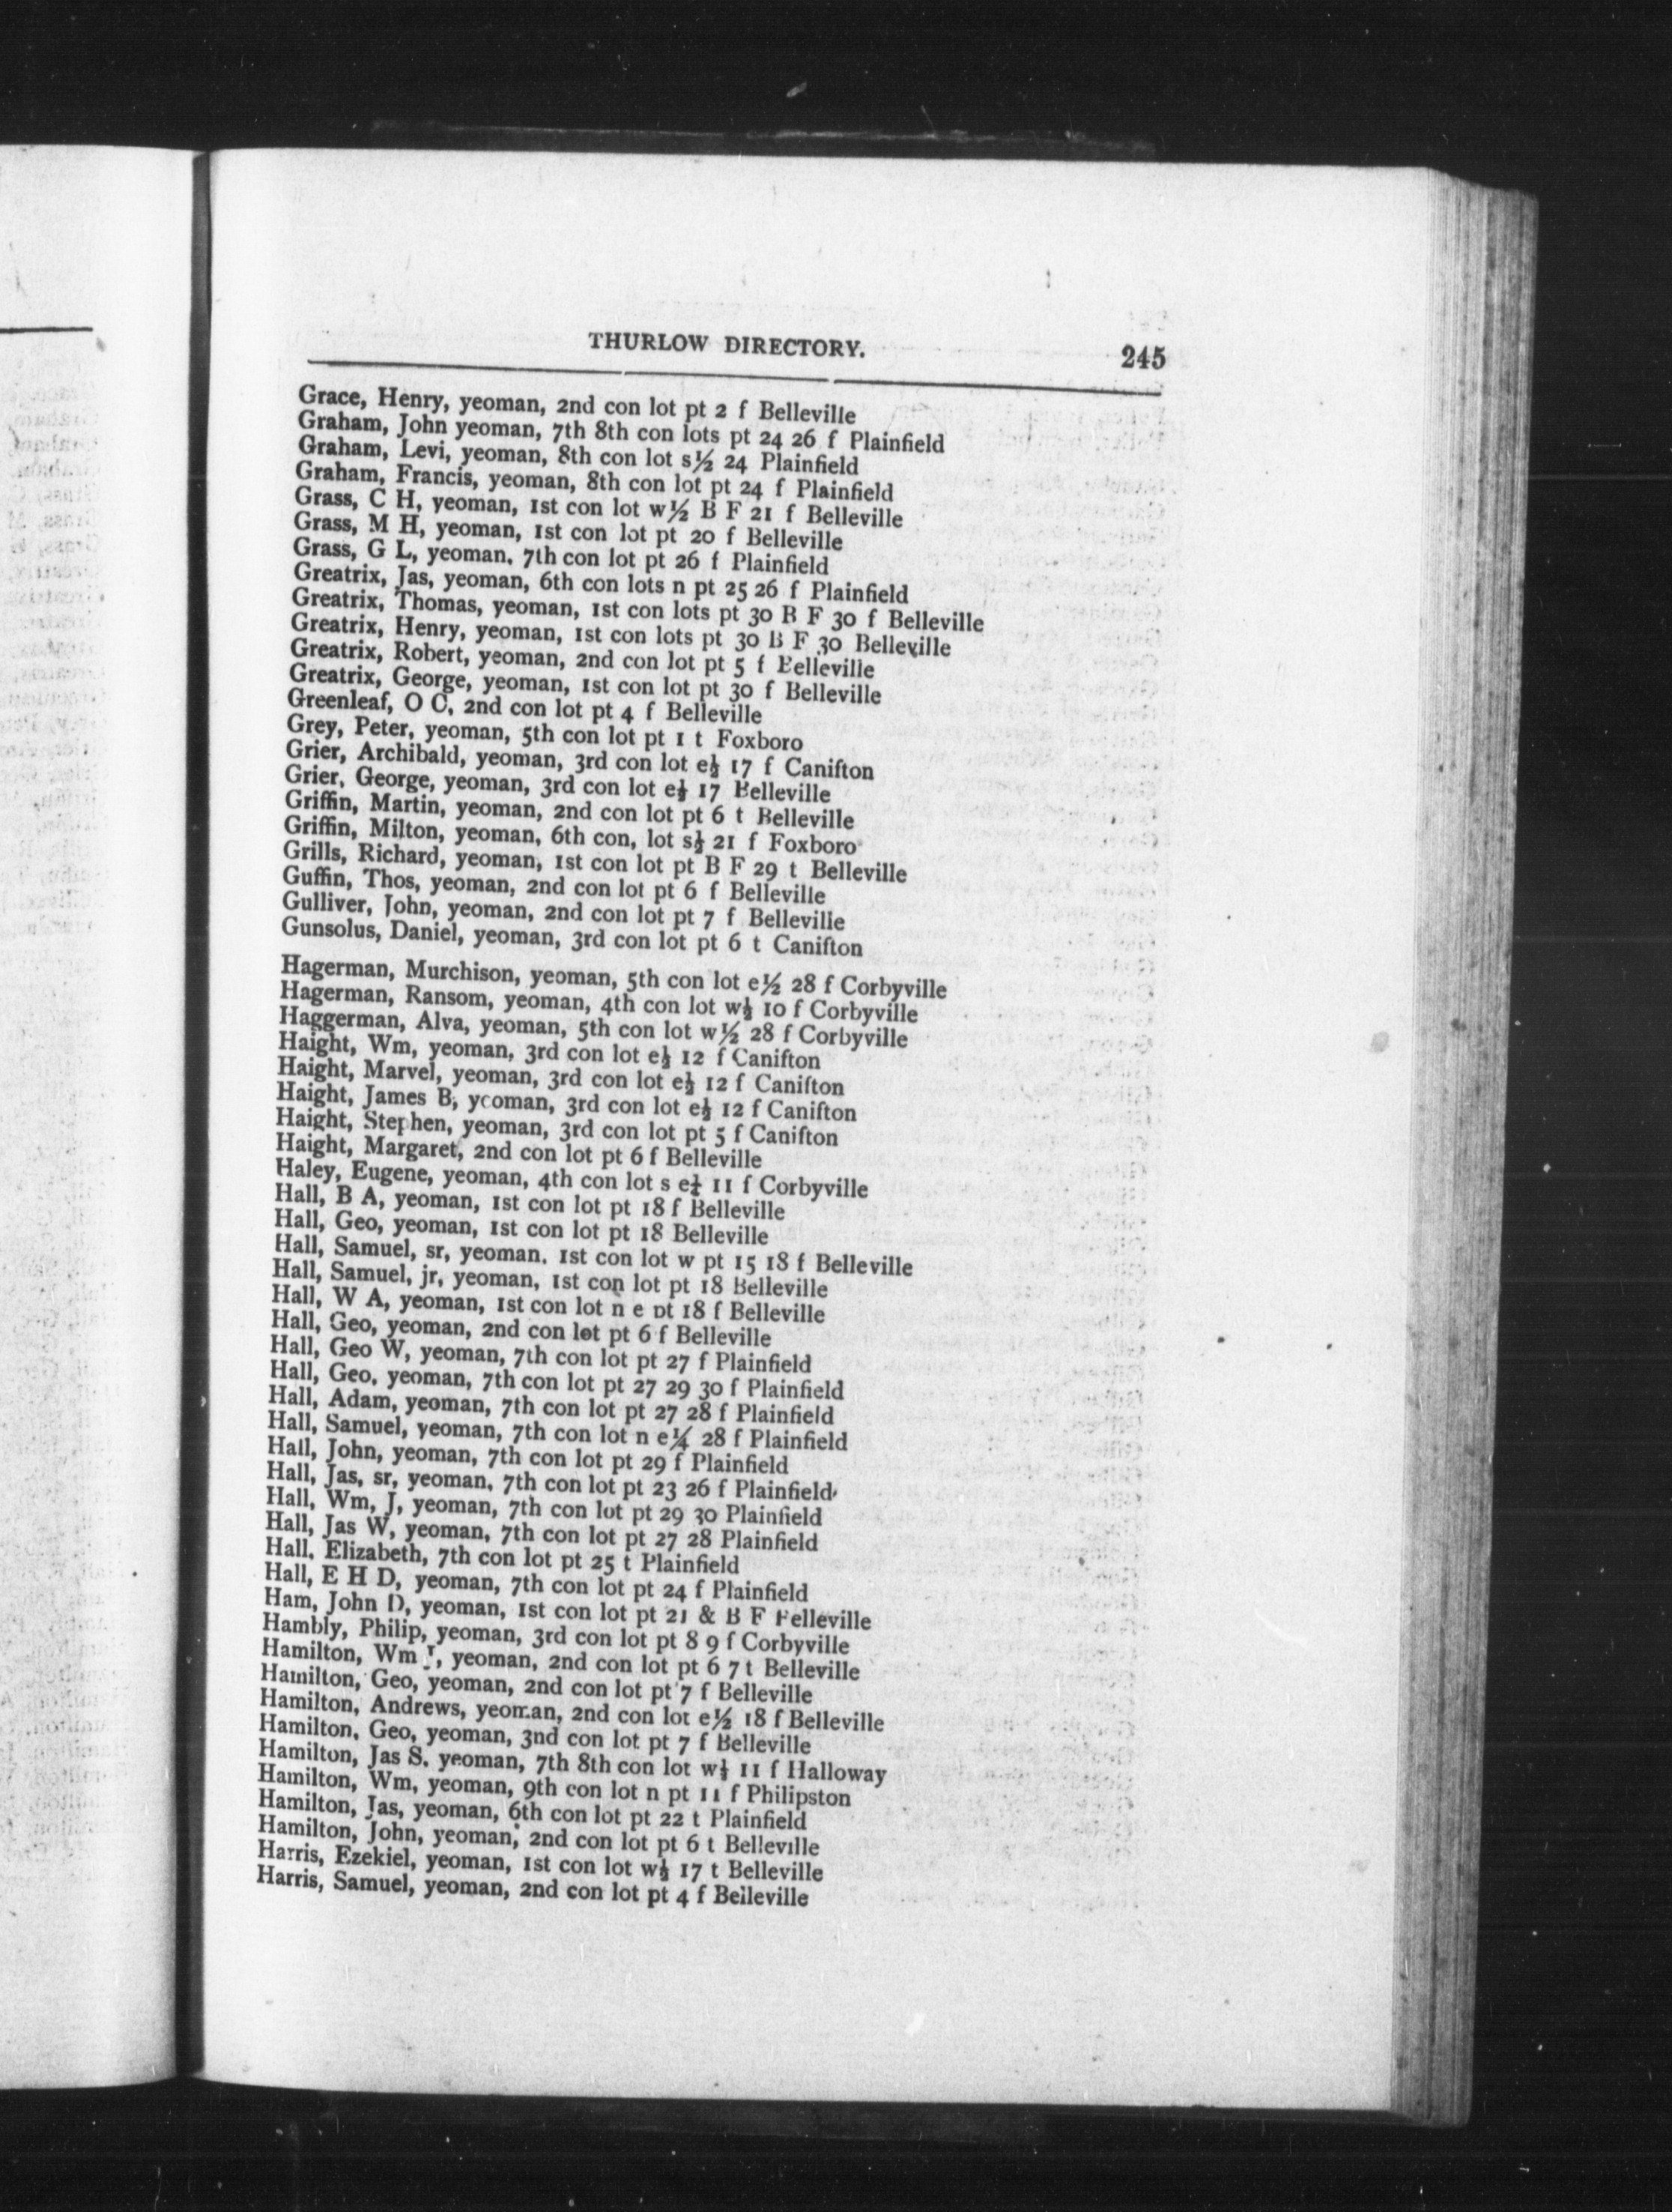 THURLOW DIRECTORY. 245
Grace, Henry, yeoman, 2nd con lot pt 2 f Belleville
Graham, John yeoman, 7th 8th con lots pt 24 26 f Plainfield
Graham, Levi, yeoman, 8th con lot s½ 24 Plainfield
Graham, Francis, yeoman, 8th con lot pt 24 f Plainfield
Grass, C H, yeoman, 1st con lot w½ B F 21 f Belleville
Grass, M H, yeoman, 1st con lot pt 20 f Belleville
Grass, G L, yeoman, 7th con lot pt 26 f Plainfield
Greatrix, Jas, yeoman, 6th con lots n pt 25 26 f Plainfield
Greatrix, Thomas, yeoman, 1st con lots pt 30 B F 30 f Belleville
Greatrix, Henry, yeoman, 1st con lots pt 30 B F 30 Belleville
Greatrix, Robert, yeoman, 2nd con lot pt 5 f Belleville
Greatrix, George, yeoman, 1st con lot pt 30 f Belleville
Greenleaf, O C, 2nd con lot pt 4 f Belleville
Grey, Peter, yeoman, 5th con lot pt 1 t Foxboro
Grier, Archibald, yeoman, 3rd con lot e½ 17 f Canifton
Grier, George, yeoman, 3rd con lot e½ 17 Belleville
Griffin, Martin, yeoman, 2nd con lot pt 6 t Belleville
Griffin, Milton, yeoman, 6th con, lot s½ 21 f Foxboro
Grills, Richard, yeoman, 1st con lot pt B F 29 t Belleville
Guffin, Thos, yeoman, 2nd con lot pt 6 f Belleville
Gulliver, John, yeoman, 2nd con lot pt 7 f Belleville
Gunsolus, Daniel, yeoman, 3rd con lot pt 6 t Canifton
Hagerman, Murchison, yeoman, 5th con lot e½ 28 f Corbyville
Hagerman, Ransom, yeoman, 4th con lot w½ 10 f Corbyville
Haggerman, Alva, yeoman, 5th con lot w½ 28 f Corbyville
Haight, Wm, yeoman, 3rd con lot e½ 12 f Canifton
Haight, Marvel, yeoman, 3rd con lot e½ 12 f Canifton
Haight, James B, yeoman, 3rd con lot e½ 12 f Canifton
Haight, Stephen, yeoman, 3rd con lot pt 5 f Canifton
Haight, Margaret, 2nd con lot pt 6 f Belleville
Haley, Eugene, yeoman, 4th con lot s e¼ 11 f Corbyville
Hall, B A, yeoman, 1st con lot pt 18 f Belleville
Hall, Geo, yeoman, 1st con lot pt 18 Belleville
Hall, Samuel, sr, yeoman, 1st con lot w pt 15 18 f Belleville
Hall, Samuel, jr, yeoman, 1st con lot pt 18 Belleville
Hall, W A, yeoman, 1st con lot n e pt 18 f Belleville
Hall, Geo, yeoman, 2nd con lot pt 6 f Belleville
Hall, Geo W, yeoman, 7th con lot pt 27 f Plainfield
Hall, Geo, yeoman, 7th con lot pt 27 29 30 f Plainfield
Hall, Adam, yeoman, 7th con lot pt 27 28 f Plainfield
Hall, Samuel, yeoman, 7th con lot n e¼ 28 f Plainfield
Hall, John, yeoman, 7th con lot pt 29 f Plainfield
Hall, Jas, sr, yeoman, 7th con lot pt 23 26 f Plainfield
Hall, Wm, J, yeoman, 7th con lot pt 29 30 Plainfield
Hall, Jas W, yeoman, 7th con lot pt 27 28 Plainfield
Hall, Elizabeth, 7th con lot pt 25 t Plainfield
Hall, E H D, yeoman, 7th con lot pt 24 f Plainfield
Ham, John D, yeoman, 1st con lot pt 21 & B F Belleville
Hambly, Philip, yeoman, 3rd con lot pt 8 9 f Corbyville
Hamilton, Wm , yeoman, 2nd con lot pt 6 7 t Belleville
Hamilton, Geo, yeoman, 2nd con lot pt 7 f Belleville
Hamilton, Andrews, yeoman, 2nd con lot e½ 18 f Belleville
Hamilton, Geo, yeoman, 3nd con lot pt 7 f Belleville
Hamilton, Jas S. yeoman, 7th 8th con lot w½ 11 f Halloway
Hamilton, Wm, yeoman, 9th con lot n pt 11 f Philipston
Hamilton, Jas, yeoman, 6th con lot pt 22 t Plainfield
Hamilton, John, yeoman, 2nd con lot pt 6 t Belleville
Harris, Ezekiel, yeoman, 1st con lot w½ 17 t Belleville
Harris, Samuel, yeoman, 2nd con lot pt 4 f Belleville